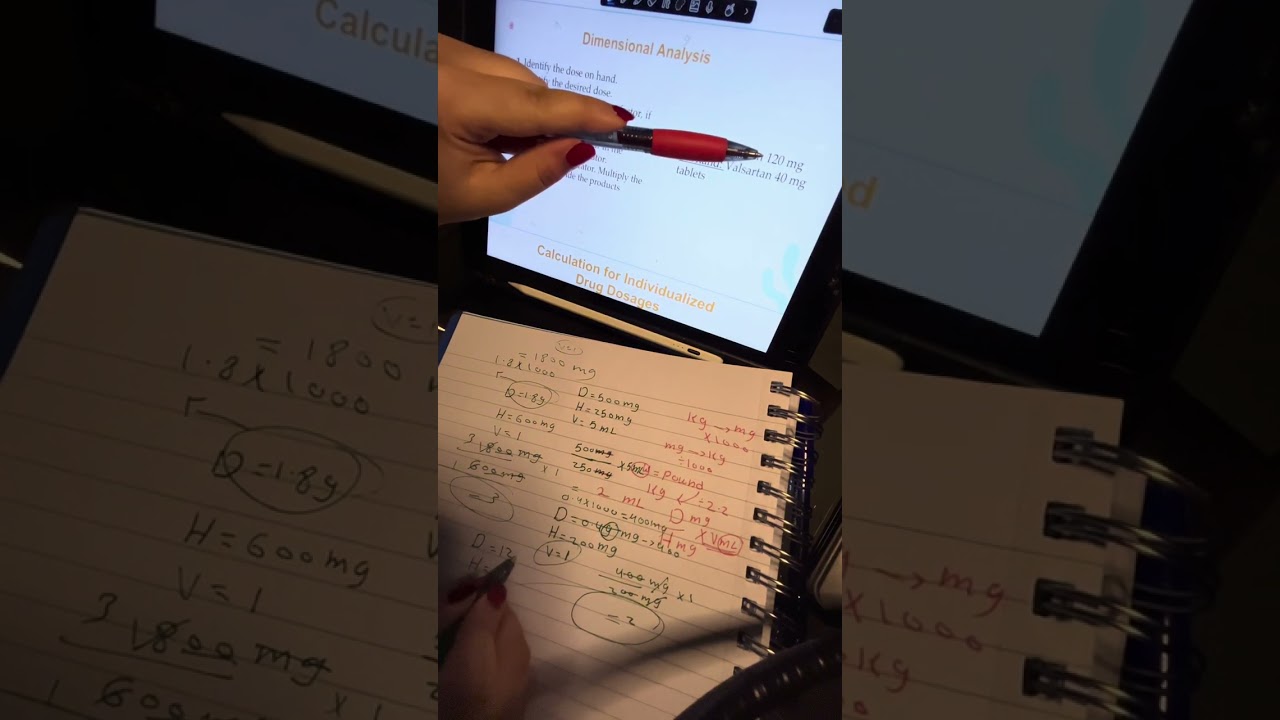 Dimensional Analysis
Identify the dose on hand.
the desired dose.
if
in the
Multiply the
the products
120 mg
Valsartan 40 mg
tablets
Calculation for Individualized
Drug Dosages
= 1800 mg
1.8 x 1000
D = 1.8g
H = 600mg
V = 1
3 1800 mg
1 600mg x 1
= 3
D = 12
H =
D = 500mg
H = 250mg
V = 5mL
500mg
250mg x 5mL
= 2 mL
0.4 x 1000 = 400mg
D = 0.4g mg → 400
H = 200mg
V = 1
400 mg
200 mg x 1
= 2
Kg → mg
x 1000
mg → Kg
÷ 1000
= Pound
Kg ÷ 2.2
D mg
H mg x V mL